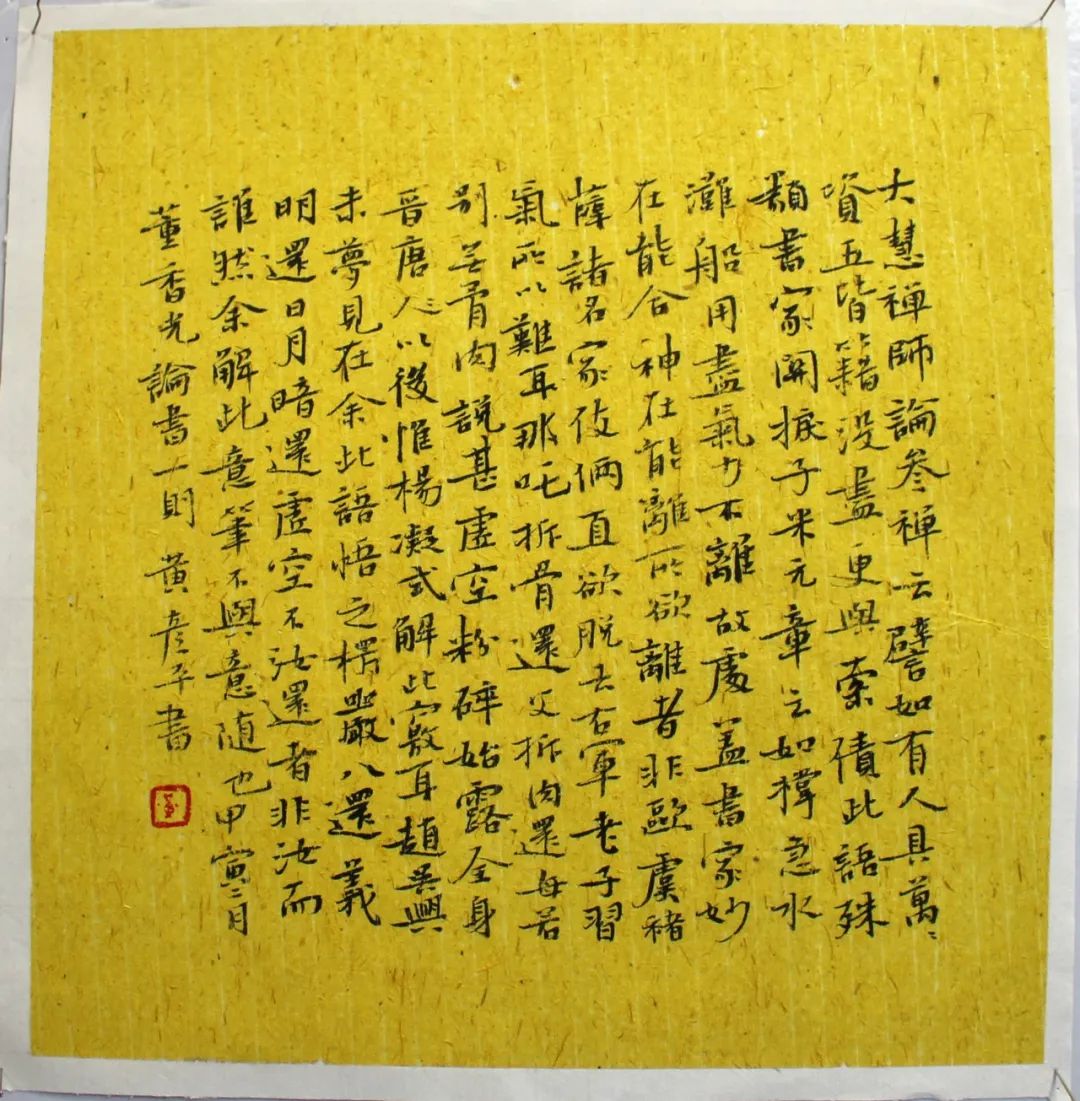 大慧禅師論叅禅云譬如有人具萬〻
資五皆籍没盡更與索債此語殊
類書家關捩子米元章云如撑急水
灘船用盡氣力不離故處盖書家妙
在能合神在能離所欲離者非歐虞褚
薛諸名家伎倆直欲脱去右軍老子習
氣所以難耳那吒拆骨還父拆肉還母若
别无骨肉説甚虚空粉碎始露全身
晋唐人〻以後惟楊凝式解此竅耳趙吴興
未夢見在余此語悟之楞嚴八還義
明還日月暗還虚空不汝還者非汝而
誰然余解此意筆不與意随也甲寅二月
董香光論書一則 黄彦平書